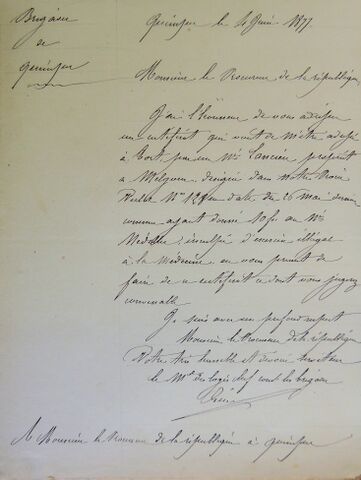 Brigade
de
Quimper
Quimper le 1 Juin 1877
Monsieur le Procureur de la république
J'ai l'honneur de vous adresser
un certificat qui vient de m'être adressé
à tort par un Mr
à désigné dans notre Procès
Verbal No 121 en date du 26 mai dernier
comme ayant donné 10 fr au Mr
inculpé d'exercice illégal
de la Médecine, en vous priant de
faire de ce certificat ce dont vous jugerez
convenable
Je suis avec un profond respect
Monsieur le Procureur de la république
Votre très humble et dévoué serviteur
le Mal des logis chef cont la brigade
A Monsieur le Procureur de la république à Quimper